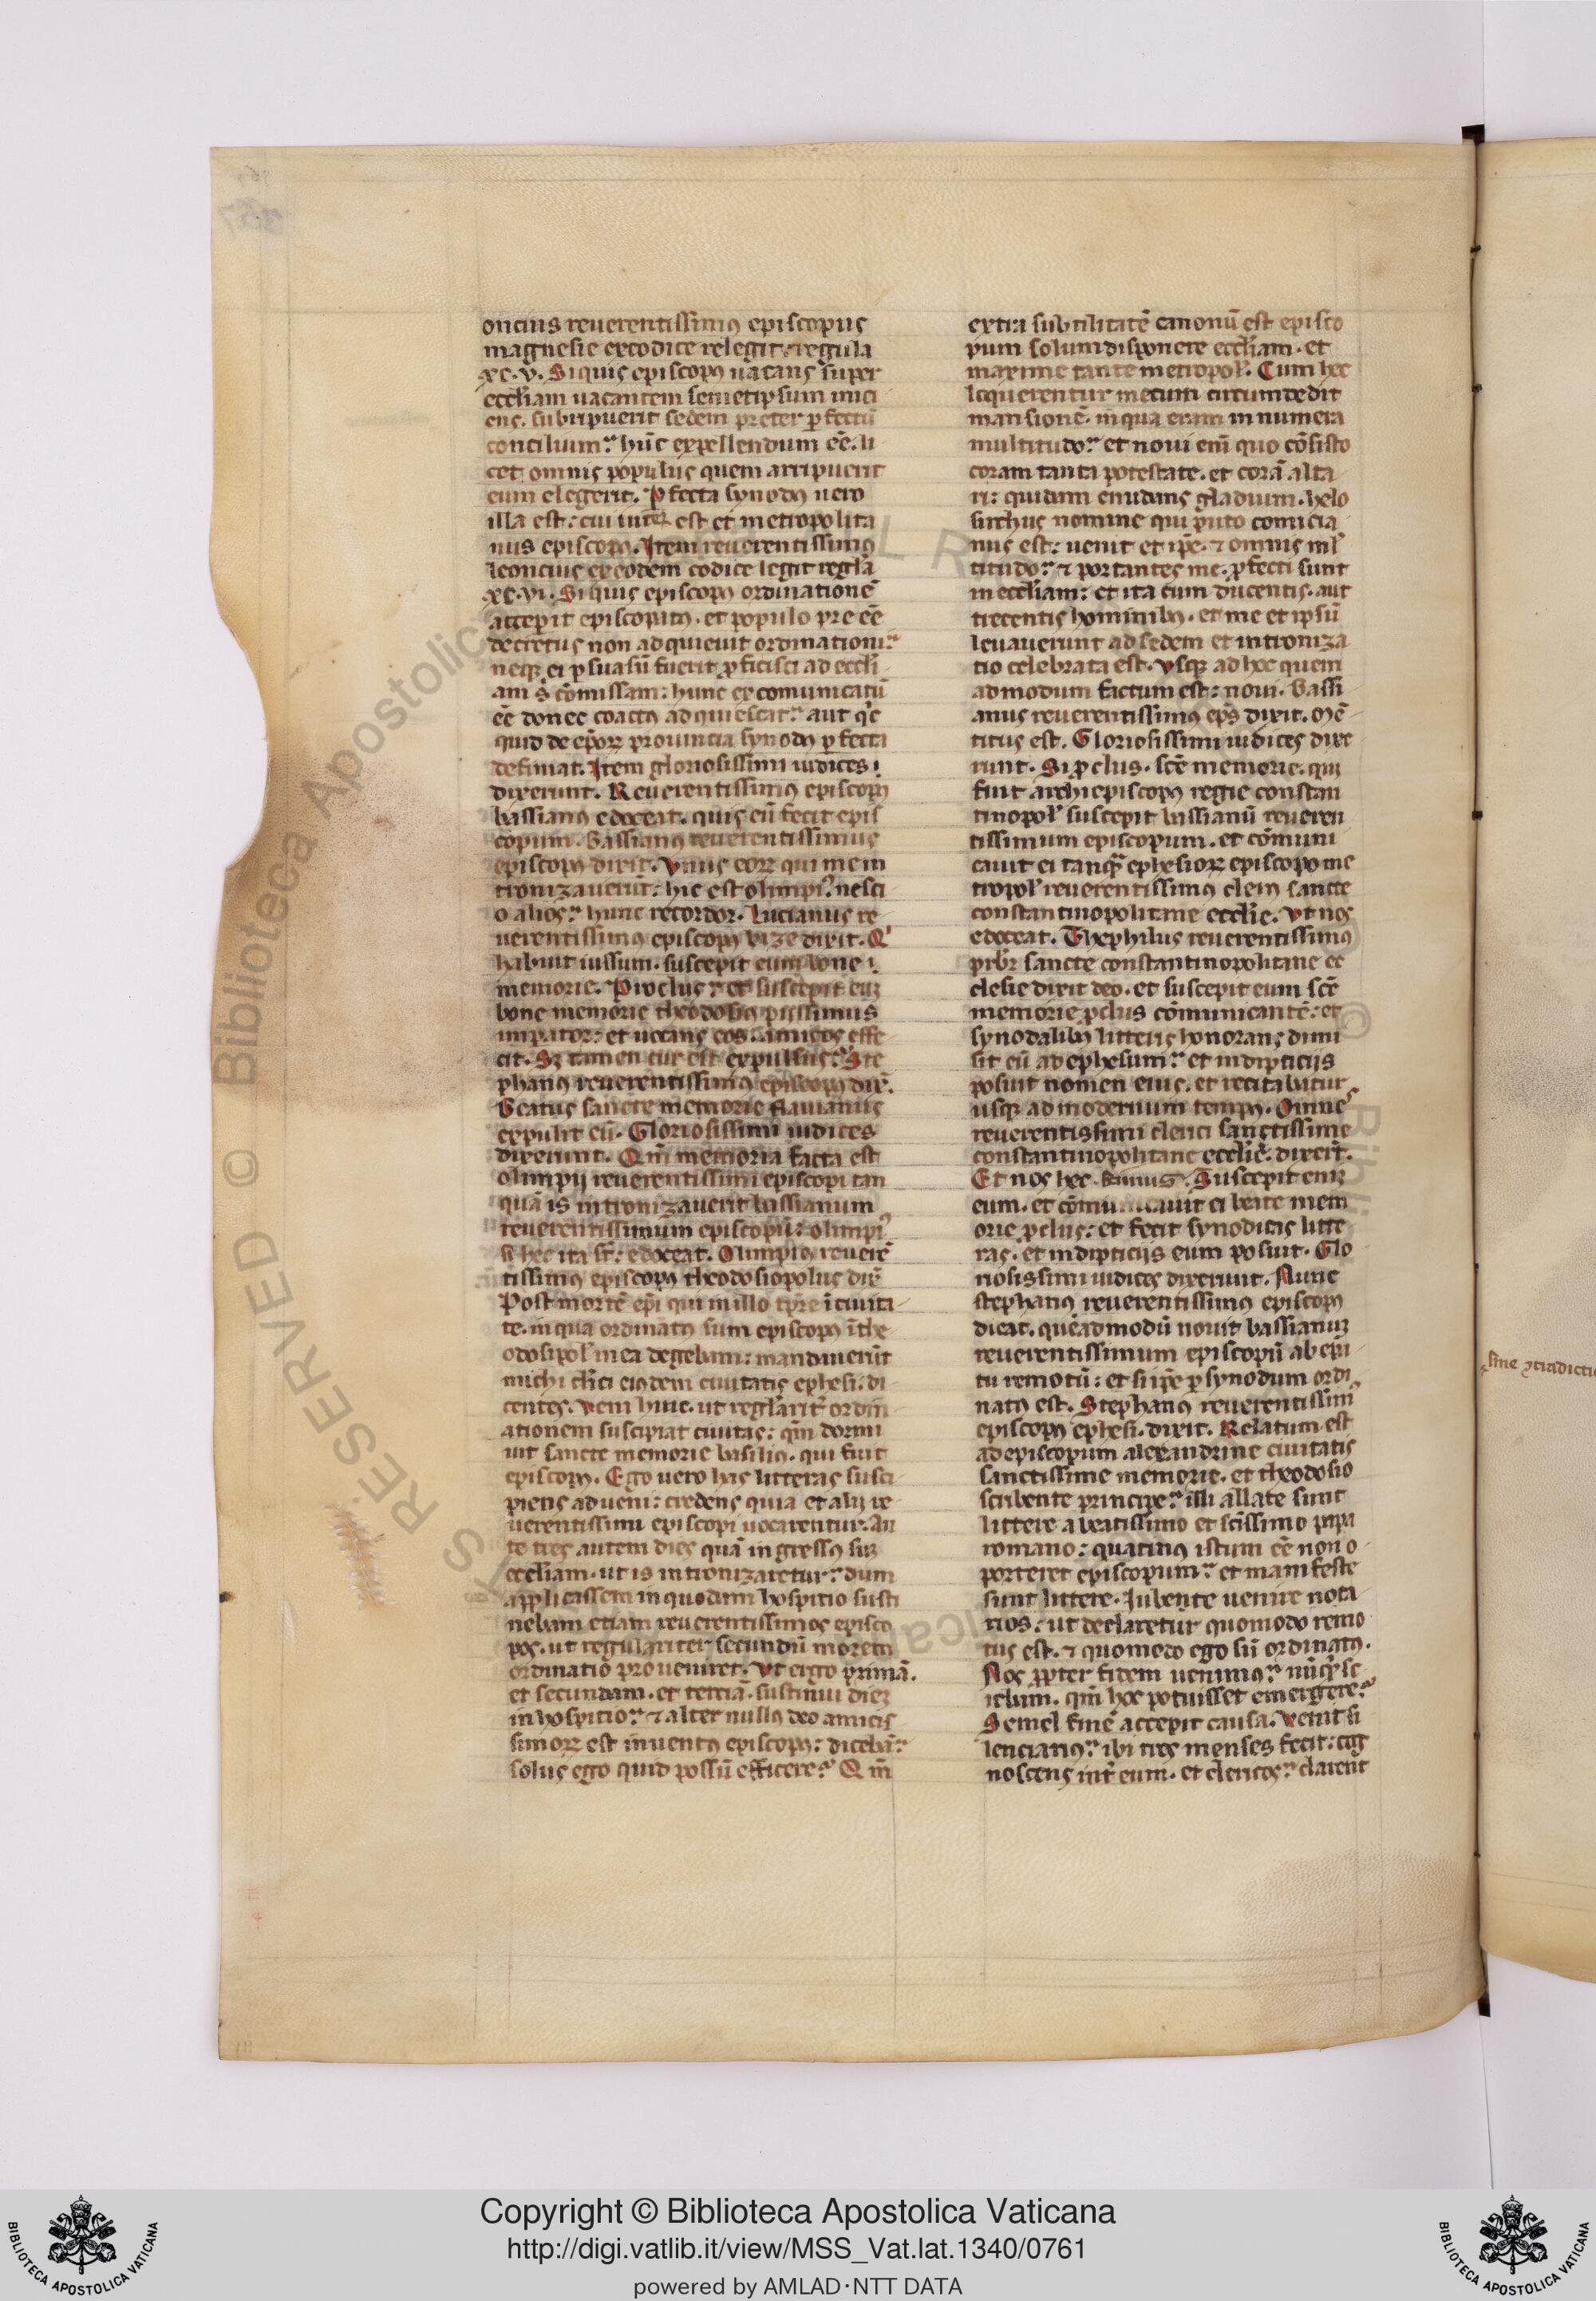 oncius reuerentissimꝰ episcopus
magnesie ex codice relegit. regula
xc. v. Si quis episcopꝰ uacans super
eccl̄iam uacantem semetipsum inici
ens. subripuerit sedem preter ꝑfectū
concilium: hūc expellendum eē. li
cet omnis populus quem arripuerit
eum elegerit. Pfecta synodꝰ uero
illa est: cui int̄ est et metropolita
nus episcopꝰ. Item reuerentissimꝰ
leoncius ex eodem codice legit regl̄a
xc. vi. Si quis episcopꝰ ordinationē
acceperit episcopatꝰ. et populo pre eē
decretus non adquieuit ordinationi:
neqꝫ ei ꝑsuasū fuerit ꝓficisci ad eccl̄i
am s̄ cōmissam: hunc excomunicatū
eē donec coactꝰ adquiescat: aut q̄c
quid de ep̄oꝝ prouincia synodꝰ ꝑfecta
definiat. Item gloriosissimi iudices
dixerunt. Reuerentissimꝰ episcopꝰ
bassianꝰ edoceat. quis eū fecit epis
copum. Bassianꝰ reuerentissimus
episcopꝰ dixit. Vnus eoꝝ qui me in
tronizauerūt: hic est olimpiꝰ. nesci
o alios: hunc recordor. Lucianus re
uerentissimꝰ episcopꝰ bize dixit. Q
habuit iussum. suscepit eum bone
memorie. Proclus: et suscepit euꝫ
bone memorie theodosiꝰ piissimus
imꝑator: et uocans eos amicos effe
cit. Sꝫ tamen cur est expulsus: Ste
phanꝰ reuerentissimꝰ episcopꝰ dix̄.
Beatus sancte memorie flauianus
expulit eū. Gloriosissimi iudices
dixerunt. Qm̄ memoria facta est
olimpij reuerentissimi episcopi tan
quā is intronizauerit bassianum
reuerentissimum episcopū: olimpiꝰ
si hec ita st̄: edoceat. Olimpiꝰ reuerē
tissimꝰ episcopꝰ theodosiopolus dix̄
Post mortē ep̄i qui in illo tp̄re ī ciuita
te. in qua ordinatꝰ sum episcopꝰ ī the
odosipol̄ in ea degebam: mandauerūt
michi cl̄ici eiꝰdem ciuitatis ephesi. di
centes. Veni huc. ut regl̄arit̄ ordin
ationem suscipiat ciuitas: qm̄ dormi
uit sancte memorie basiliꝰ. qui fuit
episcopꝰ. Ego uero has litteras susci
piens adueni: credens quia et alij re
uerentissimi episcopi uocarentur. An
te tres autem dies quā ingressꝰ suꝫ
eccl̄iam. ut is intronizaretur: dum
applicassem in quodam hospitio susti
nebam etiam reuerentissimos episco
pos. ut regulariter secundū morem
ordinatio proueniret. Vt ergo primā.
et secundam. et terciā. sustinui dieꝫ
in hospitio: ⁊ alter nullꝰ deo amicis
simoꝝ est inuentꝰ episcopꝰ: dicebā:
solus ego quid possū efficere? Qm̄
extra subtilitatē canonū est episco
pum solum disponere eccl̄iam. et
maxime tante metropol̄. Cum hec
loquerentur mecum circumdedit
mansionē. in qua eram innumera
multitudo: et noui em̄ quo cōsisto
coram tanta potestate. et corā alta
ri: quidam enudans gladium. helo
sirchus nomine qui puto comicia
nus est: uenit et ip̄e. ⁊ omnis ml̄
titudo: ⁊ portantes me. ꝓfecti sunt
in eccl̄iam: et ita cum ducentis. aut
trecentis hominibꝰ. et me et ipsū
leuauerunt ad sedem et introniza
tio celebrata est. Vsqꝫ ad hec quem
admodum factum est: noui. Bassi
anus reuerentissimus ep̄s dixit. Mē
titus est. Gloriosissimi iudices dixe
runt. Si ꝓclus. sc̄e memorie. qui
fuit archiepiscopꝰ regie constan
tinopol̄ suscepit bassianū reueren
tissimum episcopum. et cōmuni
cauit ei tanqꝫ ephesioꝝ episcopo me
tropol̄ reuerentissimꝰ clerꝰ sancte
constantinopolitane eccl̄ie. Vt nos
edoceat. Thephilus reuerentissimꝰ
prb̄r sancte constantinopolitane ec
clesie dixit deo. et suscepit eum sc̄e
memorie ꝓclus cōmunicantē: et
synodalibꝰ litteris honorans dimi
sit eū ad ephesum: et in dipticijs
posuit nomen eius. et recitabatur
usqꝫ ad modernum tempꝰ. Omnes
reuerentissimi clerici sanctissime
constantinopolitane eccl̄ie. dixer̄t.
Et nos hec scimus. Suscepit eniꝫ
eum. et cōmunicauit ei beate mem
orie ꝓclus: et fecit synodicas litte
ras. et in dipticijs eum posuit. Glo
riosissimi iudices dixerunt. Nunc
stephanꝰ reuerentissimꝰ episcopꝰ
dicat. quēadmodū nouit bassianuꝫ
reuerentissimum episcopū ab ep̄a
tu remotū: et si ip̄e ꝑ synodum ordi
natꝰ est. Stephanꝰ reuerentissimꝰ
episcopꝰ ephesi. dixit. Relatum est
ad episcopum alexandrine ciuitatis
sanctissime memorie. et theodosio
scribente principe: illi allate sunt
littere a beatissimo et sc̄issimo papa
romano: quatinꝰ istum eē non o
porteret episcopum: et manifeste
sunt littere. Iubente uenire nota
rios: ut declaretur quomodo remo
tus est. ⁊ quomodo ego sū ordinatꝰ.
Nos ꝓpter fidem uenimꝰ: nūqꝫ sc
iebam. qm̄ hec potuisset emergere?
Semel finē accepit causa. Venit si
lenciariꝰ: ibi tres menses fecit: cog
noscens int̄ eum. et clericos: clarent
sine 9tradictio
Copyright © Biblioteca Apostolica Vaticana
http://digi.vatlib.it/view/MSS_Vat.lat.1340/0761
powered by AMLAD·NTT DATA
BIBLIOTECA APOSTOLICA VATICANA
BIBLIOTECA APOSTOLICA VATICANA